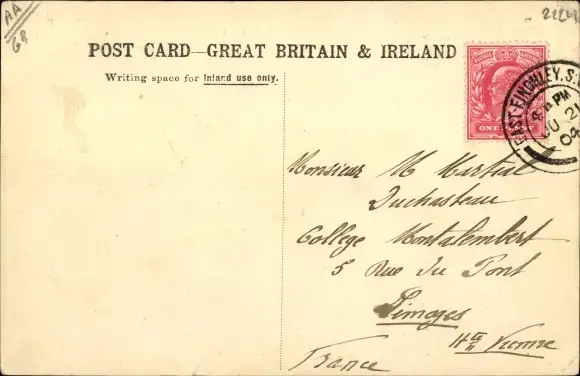 AA
68
POST CARD—GREAT BRITAIN & IRELAND
Writing space for Inland use only.
POSTAGE REVENUE
ONE PENNY
EAST-FINCHLEY.S.O
4 PM
JU 2
04
Monsieur M Martial
Duchasteau
College Montalembert
5 Rue du Pont
Limoges
Hte Vienne
France